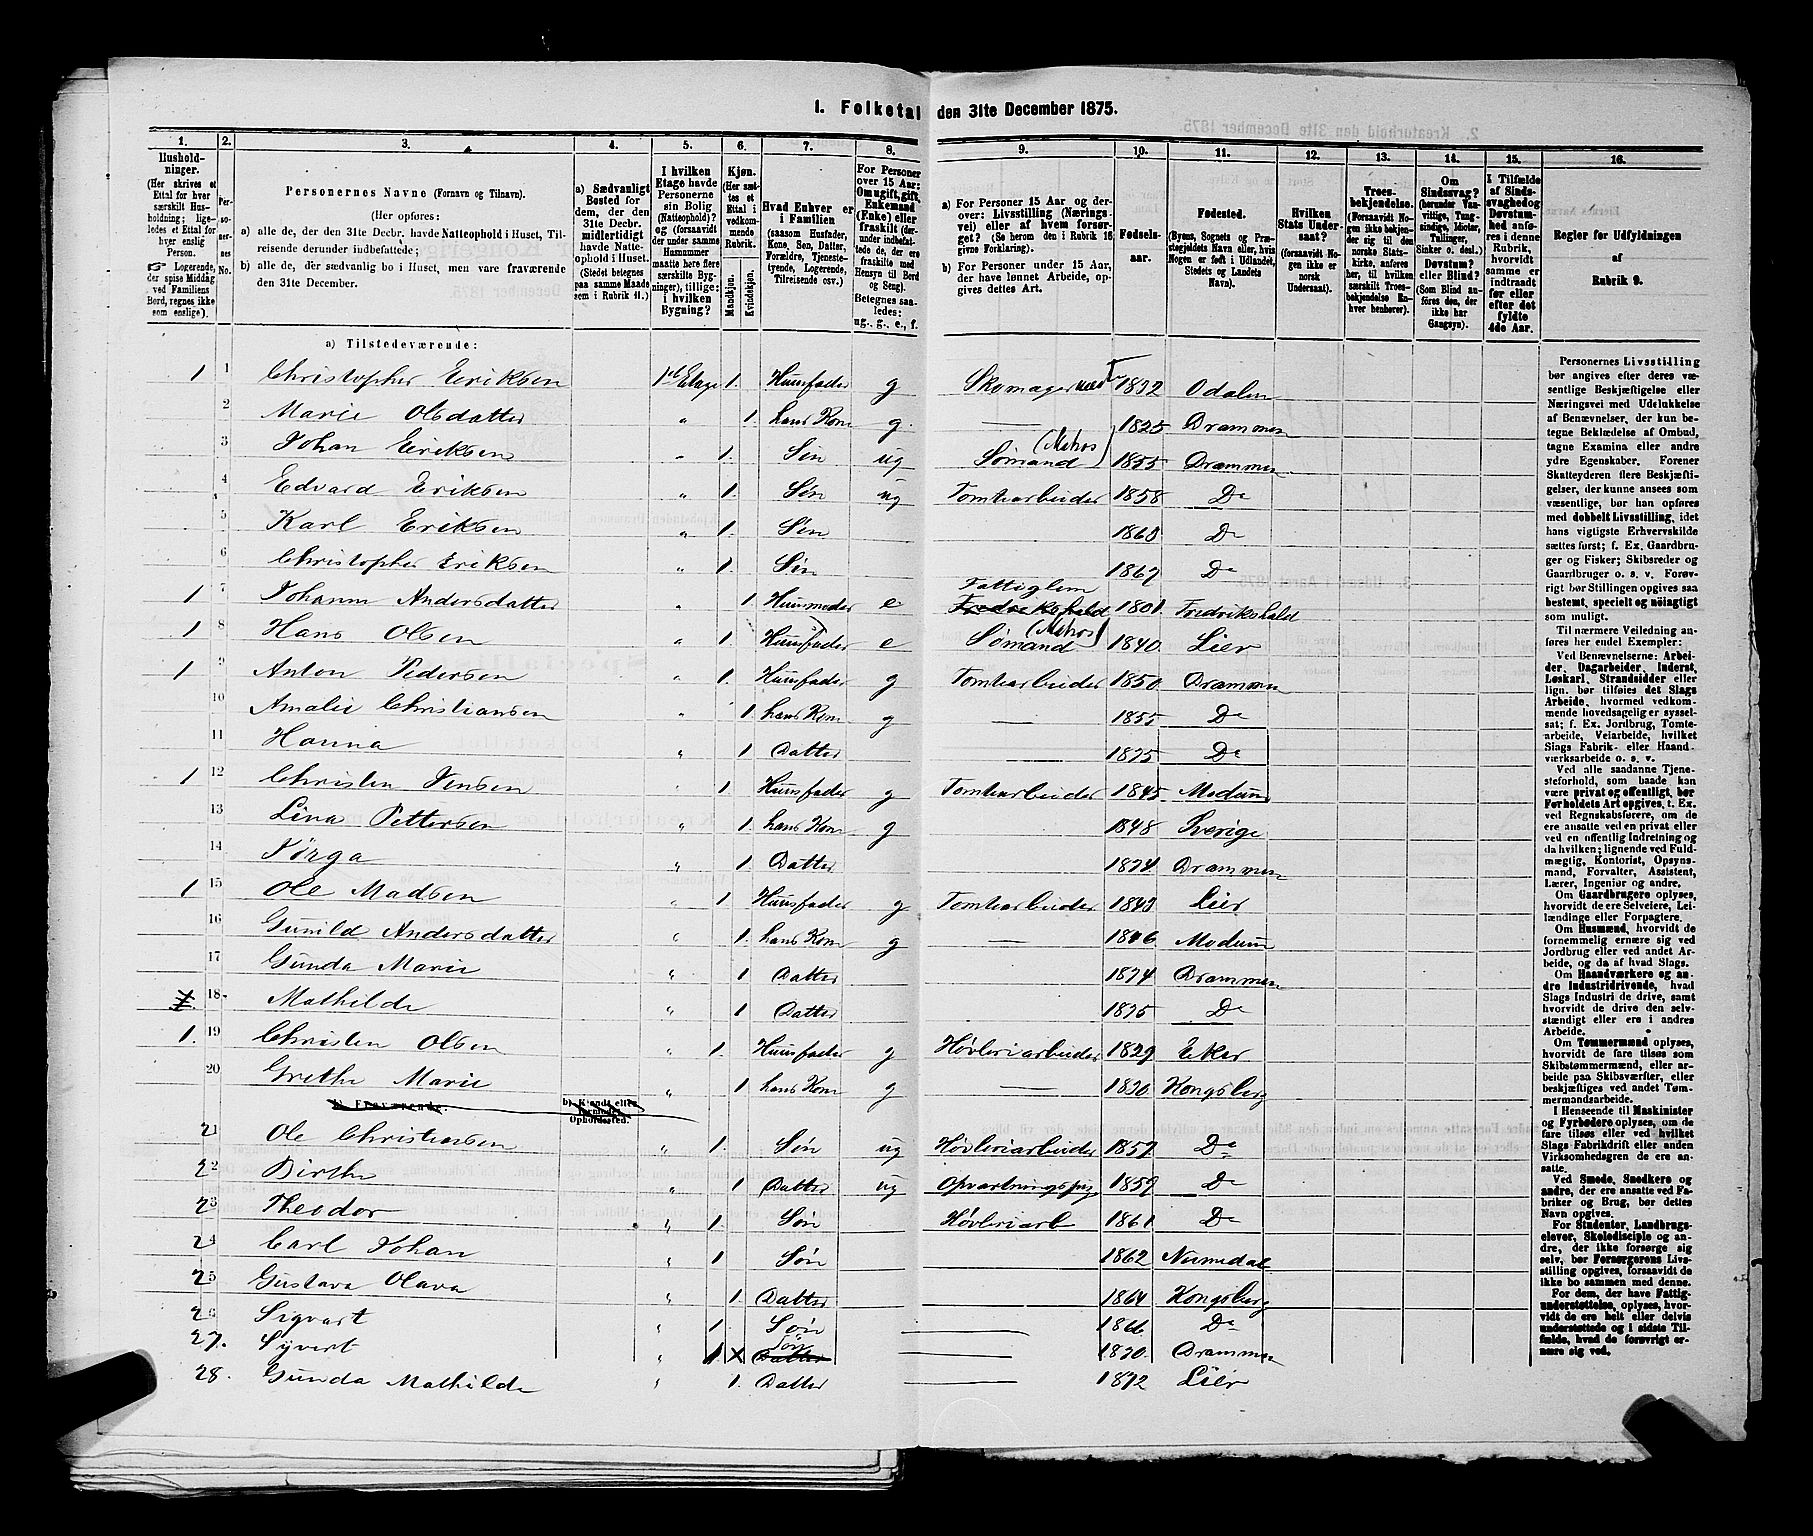 1. Folketal den 31te December 1875.
1. 2. 3. 4. 5. 6. 7. 8. 9. 10. 11. 12. 13. 14. 15. 16.
Husholdninger. (Her skrives et Ettal for hver særskilt Husholdning; ligeledes et Ettal for hver enslig Person. ☞ Logerende, der spise Middag ved Familiens Bord, regnes ikke som enslige).
Personernes No.
Personernes Navne (Fornavn og Tilnavn).
(Her opføres:
a) alle de, der den 31te Decbr. havde Natteophold i Huset, Tilreisende derunder indbefattede;
b) alle de, der sædvanlig bo i Huset, men vare fraværende den 31te December.
a) Sædvanligt Bosted for dem, der den 31te Decbr. midlertidigt havde Natteophold i Huset. (Stedet betegnes paa samme Maade som i Rubrik 11.)
I hvilken Etage havde Personerne sin Bolig (Natteophold)? og (forsaavidt der under samme Husnummer maatte høre flere særskilte Bygninger), tillige: i hvilken Bygning?
Kjøn. (Her sættes et Ettal i vedkommende Rubrik. Mandkjøn. Kvindekjøn.
Hvad Enhver er i Familien (saasom Husfader, Kone, Søn, Datter, Forældre, Tjenestetyende, Logerende, Tilreisende osv.)
For Personer over 15 Aar: Om ugift, gift, Enkemand (Enke) eller fraskilt (derunder indbefattede de, der ere fraskilte med Hensyn til Bord og Seng). Betegnes saaledes: ug., g., e., f.
a) For Personer 15 Aar og derover: Livsstilling (Næringsvei) eller af hvem forsørget? (Se herom den i Rubrik 16 givne Forklaring).
b) For Personer under 15 Aar, der have lønnet Arbeide, opgives dettes Art.
Fødselsaar.
Fødested. (Byens, Sognets og Præstegjeldets Navn, eller, hvis Nogen er født i Udlandet, Stedets og Landets Navn).
Hvilken Stats Undersaat? (forsaavidt Nogen ikke er norsk Undersaat).
Troesbekjendelse. (Forsaavidt Nogen ikke bekjender sig til den norske Statskirke, anføres her, til hvilken særskilt Troesbekjendelse Enhver henhører).
Om Sindssvag? (herunder Vanvittige, Tungsindige, Idioter, Tullinger, Sinker o. desl.) Døvstum? eller Blind? (Som Blind anføres den, der ikke har Gangsyn).
I Tilfælde af Sindssvaghed og Døvstumhed anføres i denne Rubrik, hvorvidt samme er indtraadt før eller efter det fyldte 4de Aar.
Regler for Udfyldningen af Rubrik 9.
a) Tilstedeværende:
1 1 Christopher Eriksen 1st Etage 1. Huusfader g Skomager 1832 Odalen
2 Marie Olsdatter " 1. hans Kone g. — 1825 Drammen
3 Johan Eriksen " 1. Søn ug Sømand (Matros) 1855 Drammen
4 Edvard Eriksen " 1. Søn ug Tomtearbeider 1858 Do
5 Karl Eriksen " 1. Søn 1860 Do
6 Christopher Eriksen " 1. Søn 1867 Do
1 7 Johanne Andersdatter " 1. Huusmoder e Fattiglem Fredrikshald 1801. Fredrikshald
1 8 Hans Olsen " 1. Huusfader e Sømand (Matros) 1840. Lier
1 9 Anton Pedersen " 1. Huusfader g Tomtearbeider 1850 Drammen
10 Amalie Christiansen " 1 hans Kone g — 1855 Do
11 Hanna " 1 Datter 1875 Do
1 12 Christen Jensen " 1. Huusfader g Tomtearbeider 1845. Modum
13 Lina Pettersen " 1. hans Kone g 1848 Sverige
14 Jørga " 1. Datter 1874 Drammen
1 15 Ole Madsen " 1 Huusfader g Tomtearbeider 1843 Lier
16 Gunild Andersdatter " 1. hans Kone g — 1846 Modum
17 Gunda Marie " 1 Datter 1874 Drammen
18 Mathilde " 1 Datter 1875 Do
1. 19 Christen Olsen " 1. Huusfader g Høvleriarbeider 1829 Eker
20 Grethe Marie " 1 hans Kone g — 1830 Kongsberg
b) Fraværende. b) Kjendt eller formodet Opholdssted.
21 Ole Christiansen " 1. Søn ug Høvleriarbeider 1857 Do
22 Birthe " 1 Datter ug Opvartningspige 1859 Do
23 Theodor " 1. Søn Høvleriarb 1861. Do
24 Carl Johan " 1 Søn 1862 Numedal
25 Gustava Olava " 1. Datter 1864 Kongsberg
26 Sigvart " 1 Søn — 1866 Do
27. Syvert " 1 X Søn Datter — 1870. Drammen
28. Gunda Mathilde " 1. Datter — 1872 Lier
Personernes Livsstilling bør angives efter deres væsentlige Beskjæftigelse eller Næringsvei med Udelukkelse af Benævnelser, der kun betegne Beklædelse af Ombud, tagne Examina eller andre ydre Egenskaber. Forener Skatteyderen flere Beskjæftigelser, der kunne ansees som væsentlige, bør han opføres med dobbelt Livsstilling, idet hans vigtigste Erhvervskilde sættes først; f. Ex. Gaardbruger og Fisker; Skibsreder og Gaardbruger o. s. v. Forøvrigt bør Stillingen opgives saa bestemt, specielt og nøiagtigt som muligt.
Til nærmere Veiledning anføres her endel Exempler:
Ved Benævnelserne: Arbeider, Dagarbeider, Inderst, Løskarl, Strandsidder eller lign. bør tilføies det Slags Arbeide, hvormed vedkommende hovedsagelig er sysselsat; f. Ex. Jordbrug, Tomtearbeide, Veiarbeide, hvilket Slags Fabrik- eller Haandværksarbeide o. s. v.
Ved alle saadanne Tjenesteforhold, som baade kan være privat og offentligt, bør Forholdets Art opgives, t. Ex. ved Regnskabsførere, om de ere ansatte ved en privat eller ved en offentlig Indretning og da hvilken; lignende ved Fuldmægtig, Kontorist, Opsynsmand, Forvalter, Assistent, Lærer, Ingeniør og andre.
Om Gaardbrugere oplyses, hvorvidt de ere Selveiere, Leilændinge eller Forpagtere.
Om Husmænd, hvorvidt de fornemmelig ernære sig ved Jordbrug eller ved andet Arbeide, og da af hvad Slags.
Om Haandværkere og andre Industridrivende, hvad Slags Industri de drive, samt hvorvidt de drive den selvstændigt eller ere i andres Arbeide.
Om Tømmermænd oplyses, hvorvidt de fare tilsøs som Skibstømmermænd, eller arbeide paa Skibsværfter, eller beskjæftiges ved andet Tømmermandsarbeide.
I Henseende til Maskinister og Fyrbødere oplyses, om de fare tilsøs eller ved hvilket Slags Fabrikdrift eller anden Virksomhedsgren de ere ansatte.
Ved Smede, Snedkere og andre, der ere ansatte ved Fabriker og Brug, bør dettes Navn opgives.
For Studenter, Landbrugselever, Skoledisciple og andre, der ikke forsørge sig selv, bør Forsørgerens Livsstilling opgives, forsaavidt de ikke bo sammen med denne.
For dem, der have Fattigunderstøttelse, oplyses, hvorvidt de ere helt eller delvis understøttede og i sidste Tilfælde, hvad de forøvrigt ernære sig ved.